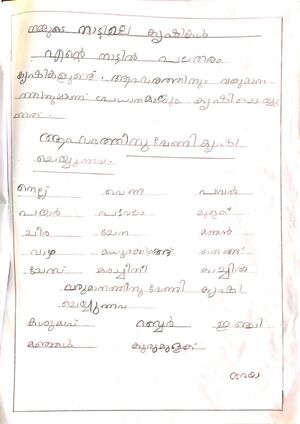 നമ്മുടെ നാട്ടിലെ കൃഷികൾ
എന്റെ നാട്ടിൽ പലതരം
കൃഷികളുണ്ട്. ആഹാരത്തിനും വരുമാന
ത്തിനുമാണ് പ്രധാനമായും കൃഷി ചെയ്യു
ന്നത്.
ആഹാരത്തിനു വേണ്ടി കൃഷി
ചെയ്യുന്നവ
നെല്ല് വെണ്ട പാവൽ
പയർ പടവലം മുളക്
ചീര ചേന മത്തൻ
വാഴ മധുരക്കിഴങ്ങ് തെങ്ങ്
ചേമ്പ് മരച്ചീനി കാച്ചിൽ
വരുമാനത്തിനു വേണ്ടി കൃഷി
ചെയ്യുന്നവ
കശുമാവ് റബ്ബർ ഇഞ്ചി
മഞ്ഞൾ കുരുമുളക്